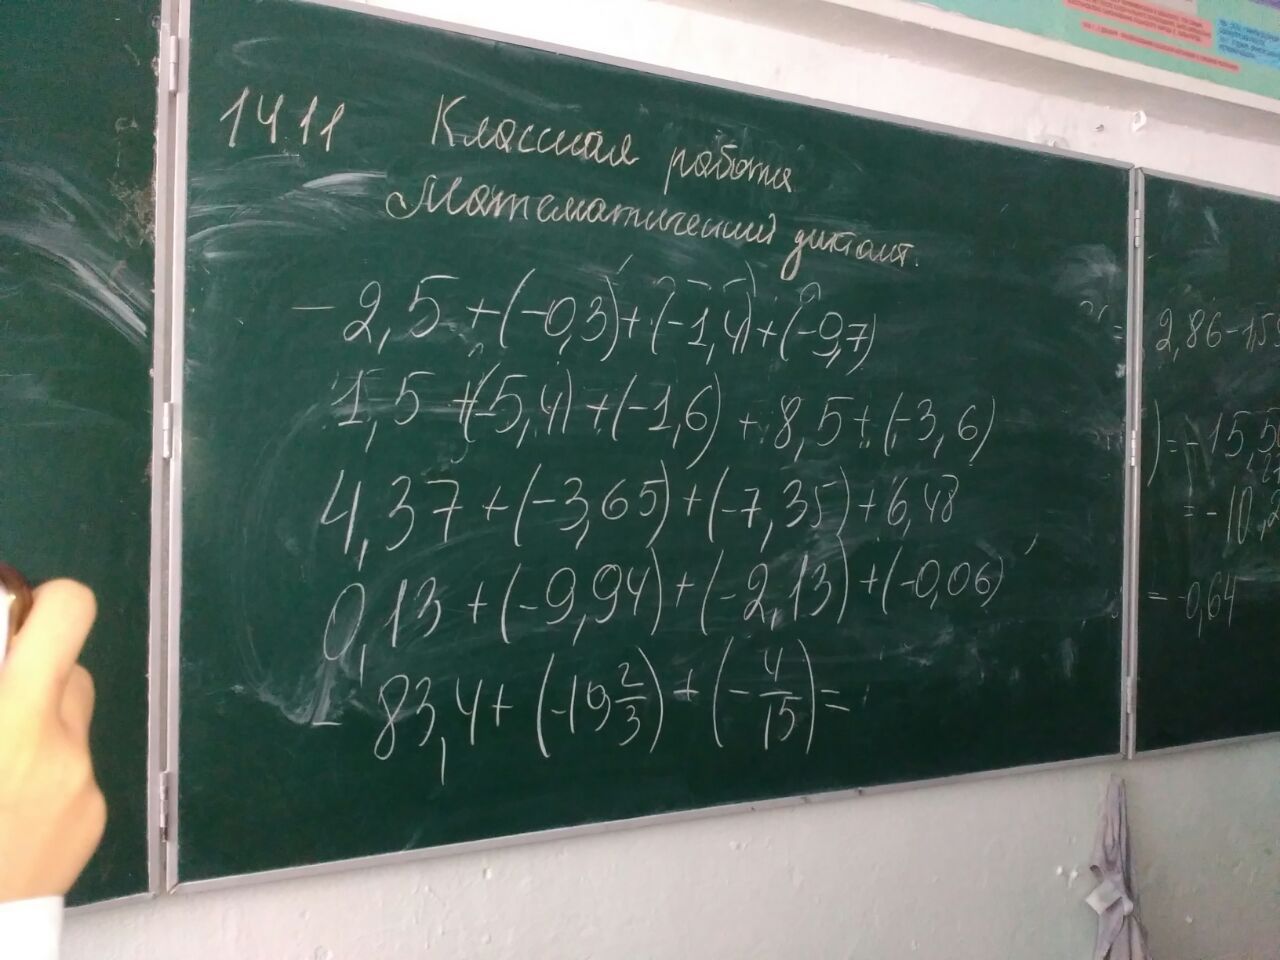 14.11 Классная работа
Математический диктант.
-2,5 + (-0,3) + (-1,4) + (-9,7)
1,5 + (-5,4) + (-1,6) + 8,5 + (-3,6)
4,37 + (-3,65) + (-7,35) + 6,48
0,13 + (-9,94) + (-2,13) + (-0,06)
- 83,4 + (-19 2/3) + (- 4/15) =
= 2,86 -
) = -15,5
= -10,2
= -0,64